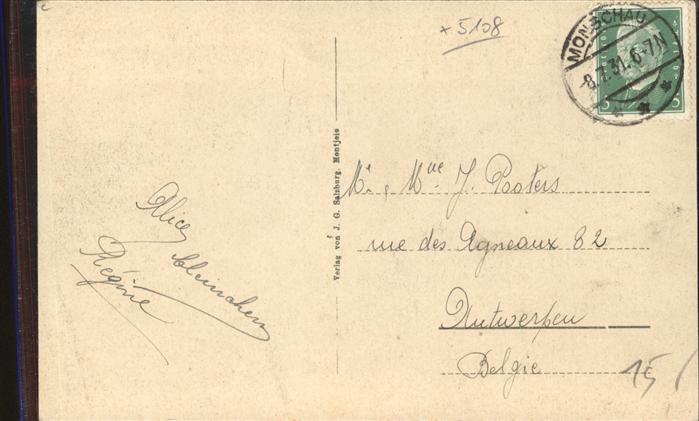 +5108
MONSCHAU
-8.7.31.6-7N
5 5
Alice
Régine
Verlag von J. G. Salzburg, Montjoie
Mr, Mme J. Pooters
rue des Agneaux 82
Antwerpen
Belgie